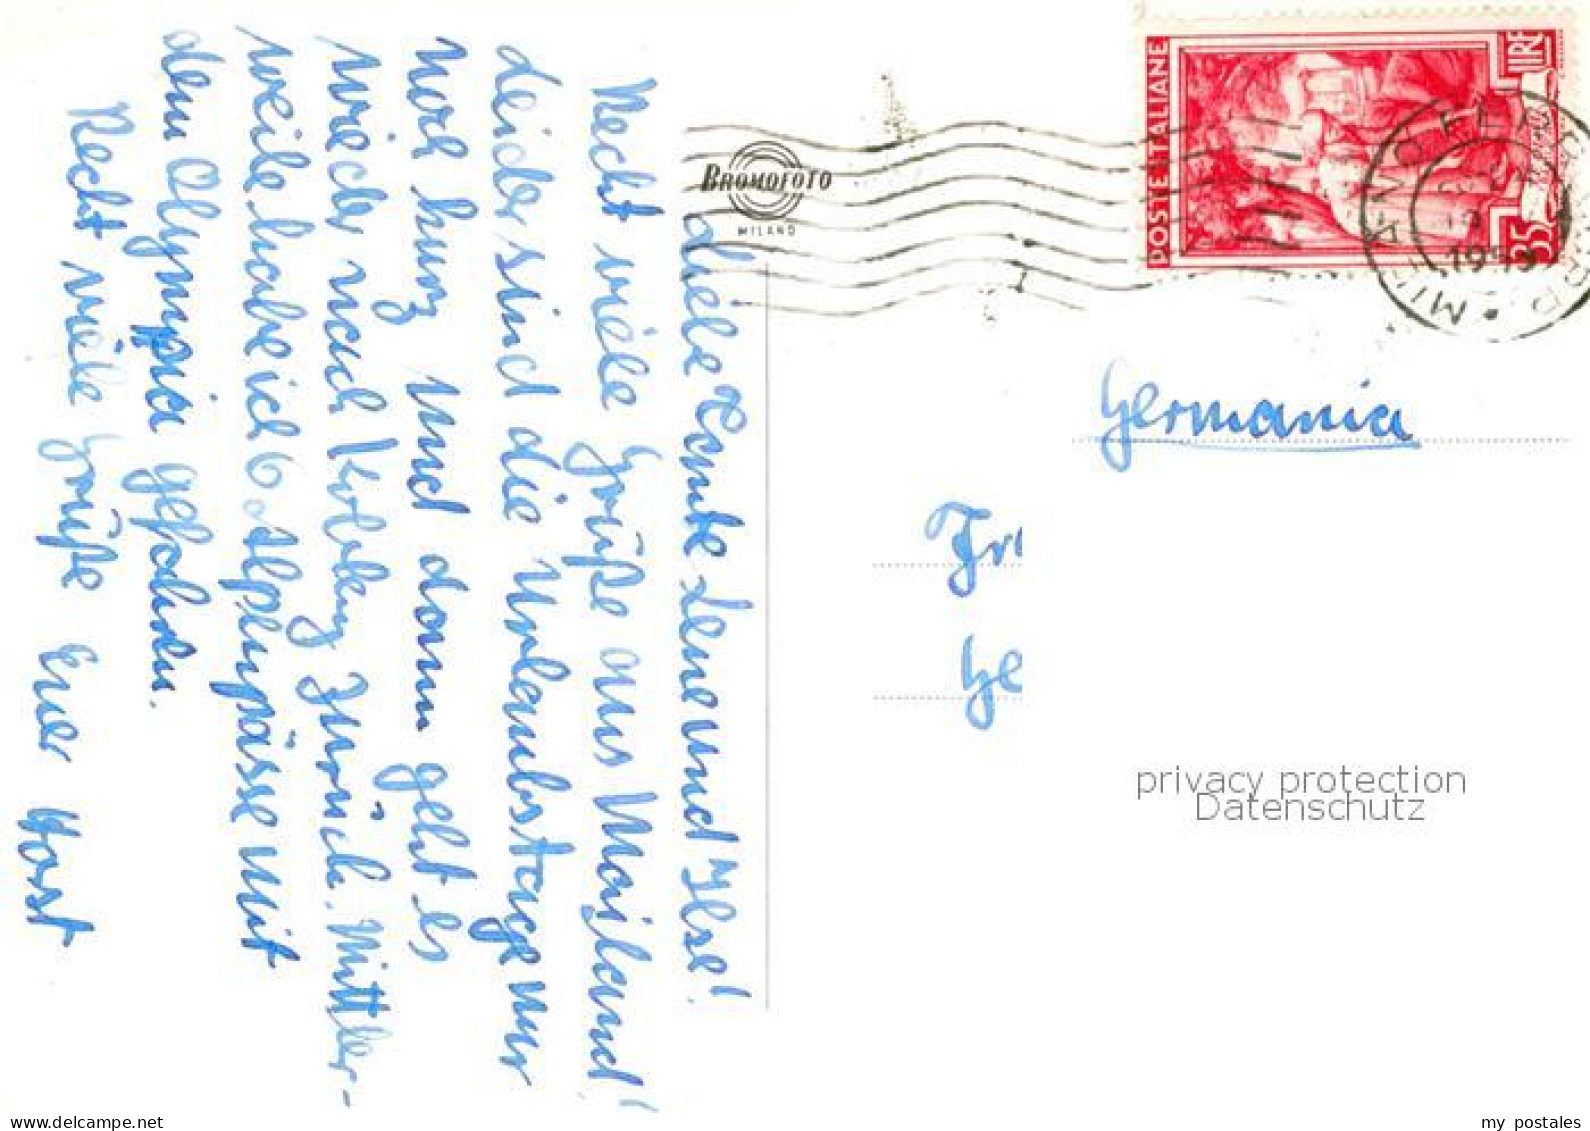 Liebe Tante Lene und Ilse!
Recht viele Grüße aus Mailand!
Leider sind die Urlaubstage nur
noch kurz und dann geht es
wieder nach Koblenz zurück. Mittler-
weile habe ich 6 Alpenpässe mit
dem Olympia gefahren.
Recht viele Grüße Euer Horst
BROMOFOTO
MILANO
POSTE ITALIANE
LIRE
35
1953
Germania
privacy protection
Datenschutz
my postales